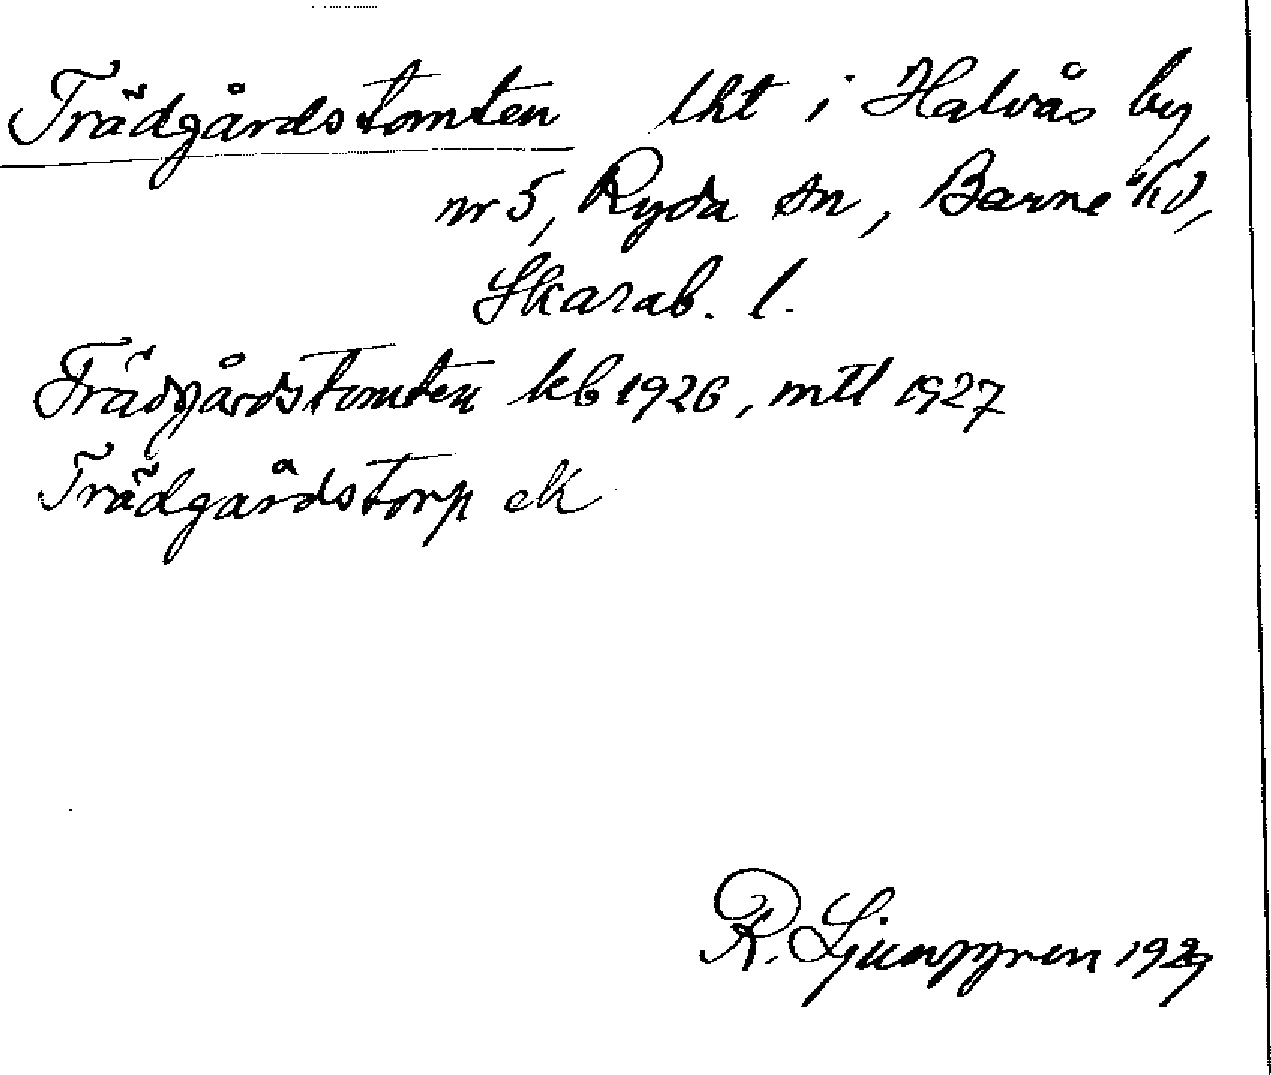 Trädgårdstomten lht i Halvås by
nr 5, Ryda sn, Barne hd,
Skarab. l.
Trädgårdstomten kb 1926, mtl 1927
Trädgårdstorp ek
R. Ljunggren